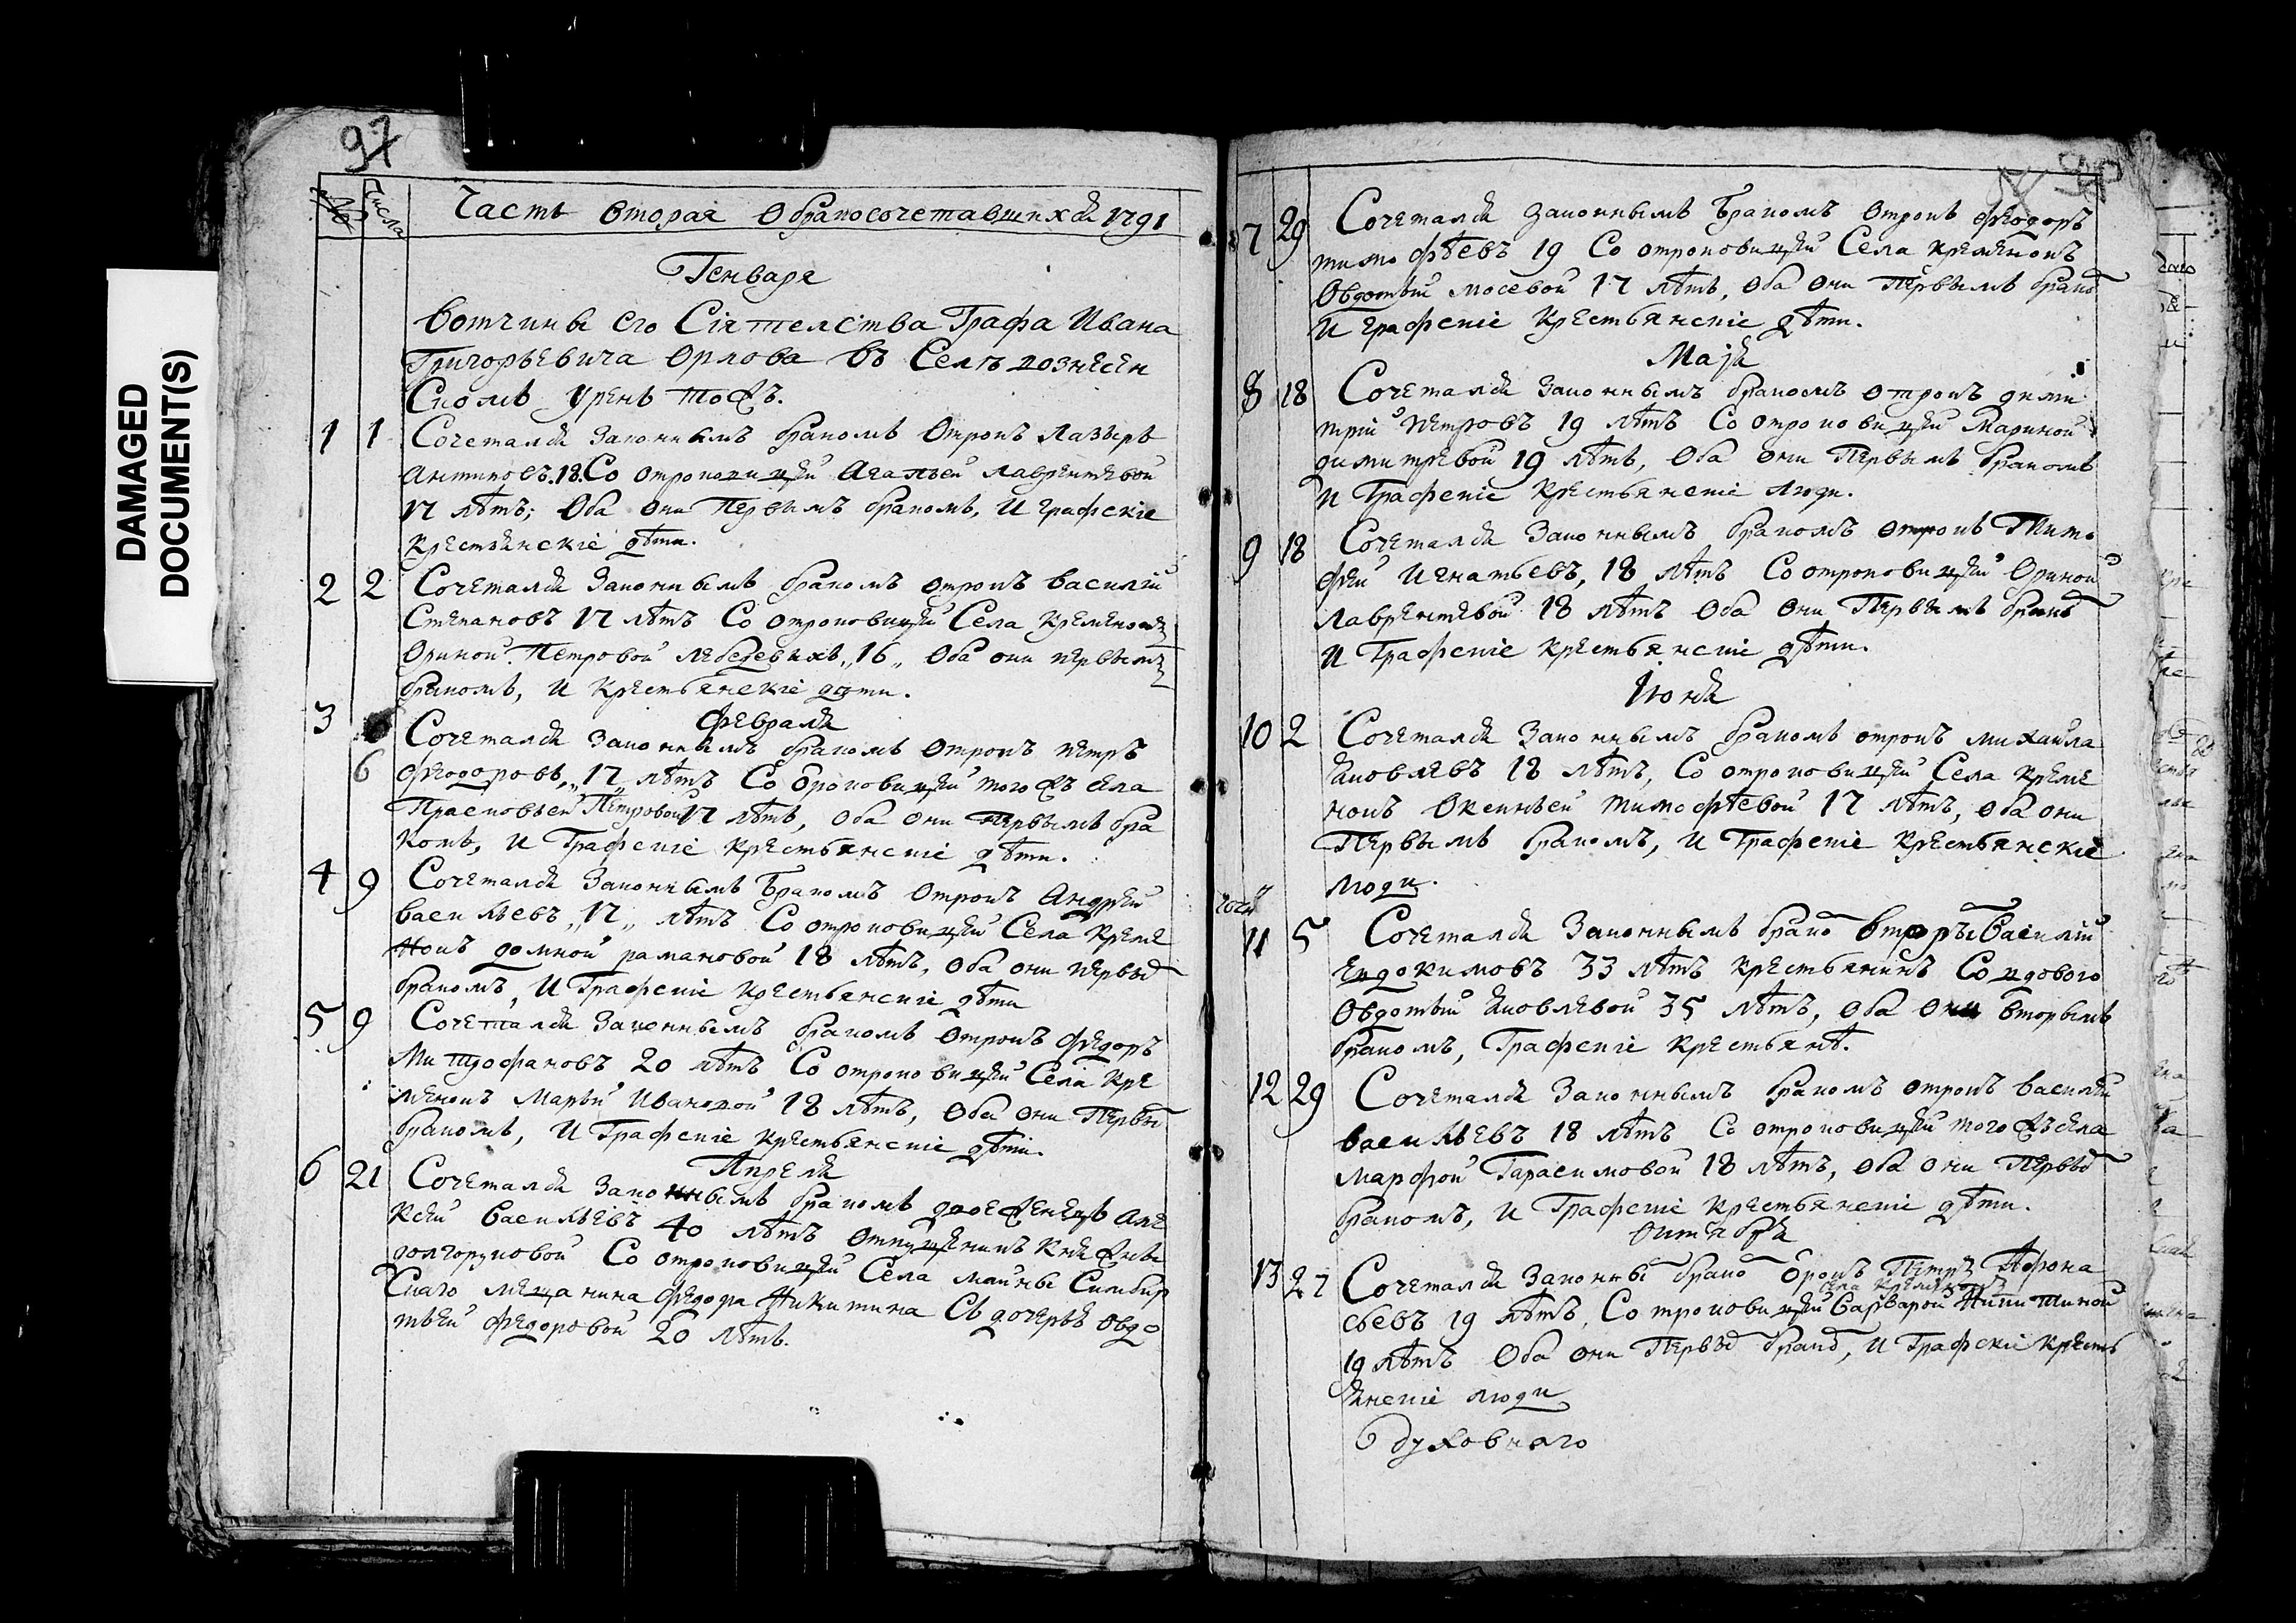 DAMAGED
DOCUMENT(S)
97
№ Числа Часть вторая о бракосочетавшихся 1791
Генваря
вотчины его Сіятелства Графа Ивана
Григорьевича Орлова въ Селѣ вознесен
скомъ Урень тожъ.
1 1 Сочетался законнымъ бракомъ отрокъ Лазырь
Антиповъ.18. Со отроковицей Агапьей лаврентевой
17 лѣтъ; Оба они первымъ бракомъ, И графскіе
крестьянскіе дѣти.
2 2 Сочетался законнымъ бракомъ отрокъ василій
Степановъ 17 лѣтъ Со отроковицей Села кременокъ
Ориной Петровой лебедевыхъ „16„ Оба они первымъ
бракомъ, и крестьянскіе дѣти.
февраля
3 Сочетался законнымъ бракомъ отрокъ петръ
6 феодоровъ „17„ лѣтъ Со отроковицей того жъ села
Прасковьей Петровой 17 лѣтъ, Оба они первымъ бра
комъ, и Графскіе крестьянскіе дѣти.
4 9 Сочетался законнымъ бракомъ отрокъ Андрей
васильевъ „17„ лѣтъ Со отроковицей Села креме
нокъ домной рамановой 18 лѣтъ, оба они первы
бракомъ, И Графскіе крестьянскіе дѣти
5 9 Сочетался законнымъ бракомъ отрокъ федоръ
Митрофановъ 20 лѣтъ Со отроковицей Села кре
менокъ Марьи Ивановой 18 лѣтъ, Оба они первы
бракомъ, И Графскіе крестьянскіе дѣти.
Апреля
6 21 Сочетался законнымъ бракомъ Але
ксей васильевъ 40 лѣтъ отпущеникъ княжны
долгоруковой Со отроковицей Села маины Симбир
скаго мещанина федора Никитина Съ дочерью овдо
тьей федоровой 20 лѣтъ.
7 29 Сочетался законнымъ бракомъ отрокъ феодоръ
тимофѣевъ 19 Со отроковицей Села кременокъ
Овдотьи мосевой 17 лѣтъ, Оба они первымъ брако
И графскіе крестьянскіе дѣти.
Маія
8 18 Сочетался законнымъ бракомъ отрокъ дими
трій петровъ 19 лѣтъ Со отроковицей Мариной
димитревой 19 лѣтъ, Оба они первымъ бракомъ
И Графскіе крестьянскіе люди.
9 18 Сочетался законнымъ бракомъ отрокъ Тимо
фей Игнатьевъ, 18 лѣтъ Со отроковицей Ориной
лаврентевой 18 лѣтъ Оба они первымъ брако
И Графскіе крестьянскіе дѣти.
Іюня
10 2 Сочетался законнымъ бракомъ отрокъ михаила
яковлевъ 18 лѣтъ, Со отроковицей Села креме
нокъ Оксиньей тимофѣевой 17 лѣтъ, оба они
первымъ бракомъ, И Графскіе крестьянскіе
люди.
11 5 Сочетался законнымъ брако вторы василій
Евдокимовъ 33 лѣтъ крестьянинъ Со вдовою
Овдотьи яковлевой 35 лѣтъ, Оба они вторымъ
бракомъ, Графскіе крестьянѣ.
12 29 Сочетался законнымъ бракомъ отрокъ василей
васильевъ 18 лѣтъ Со отроковицей того жъ села
Марфой Тарасимовой 18 лѣтъ, оба они первы
бракомъ, и Графскіе крестьянскіе дѣти.
Октября
13 27 Сочетался законны брако орокъ Петръ Афона
села кременокъ
сьевъ 19 лѣтъ, Со троковицей Варварой Никитиной
19 лѣтъ Оба они первы брако, И Графскіе кресть
янскіе люди
духовнаго